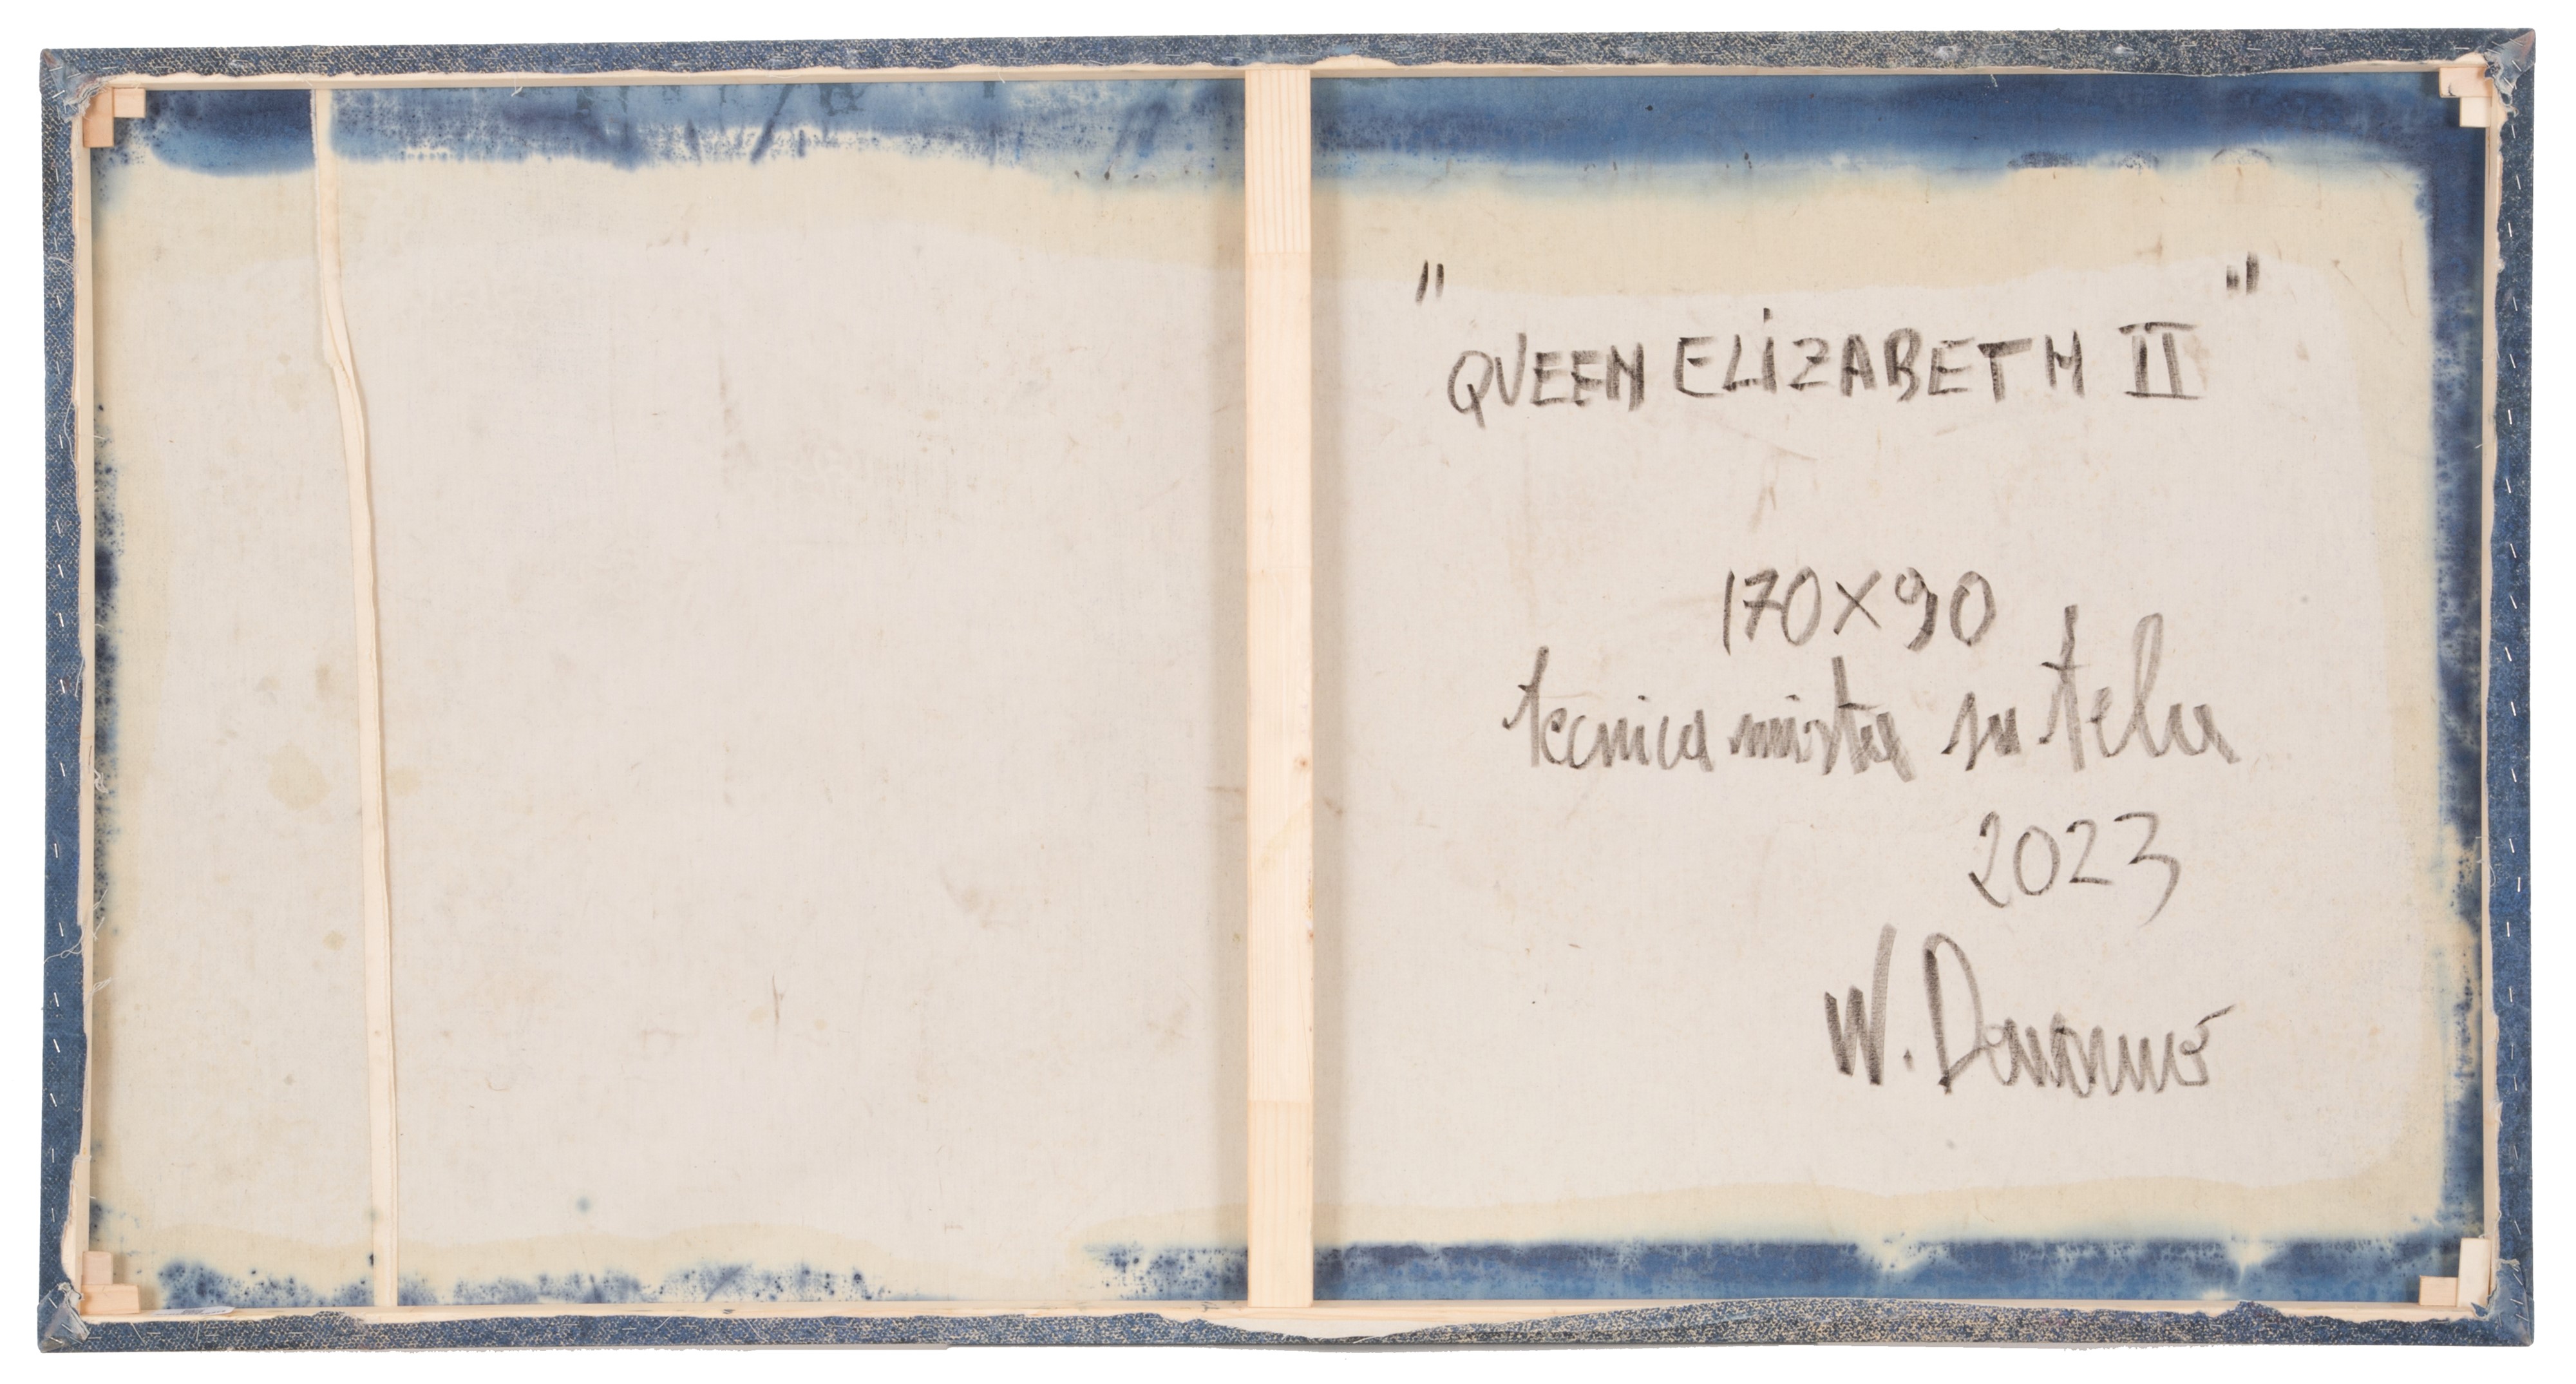 "QUEEN ELIZABETH II"
170X90
tecnica mista su tela
2023
W.